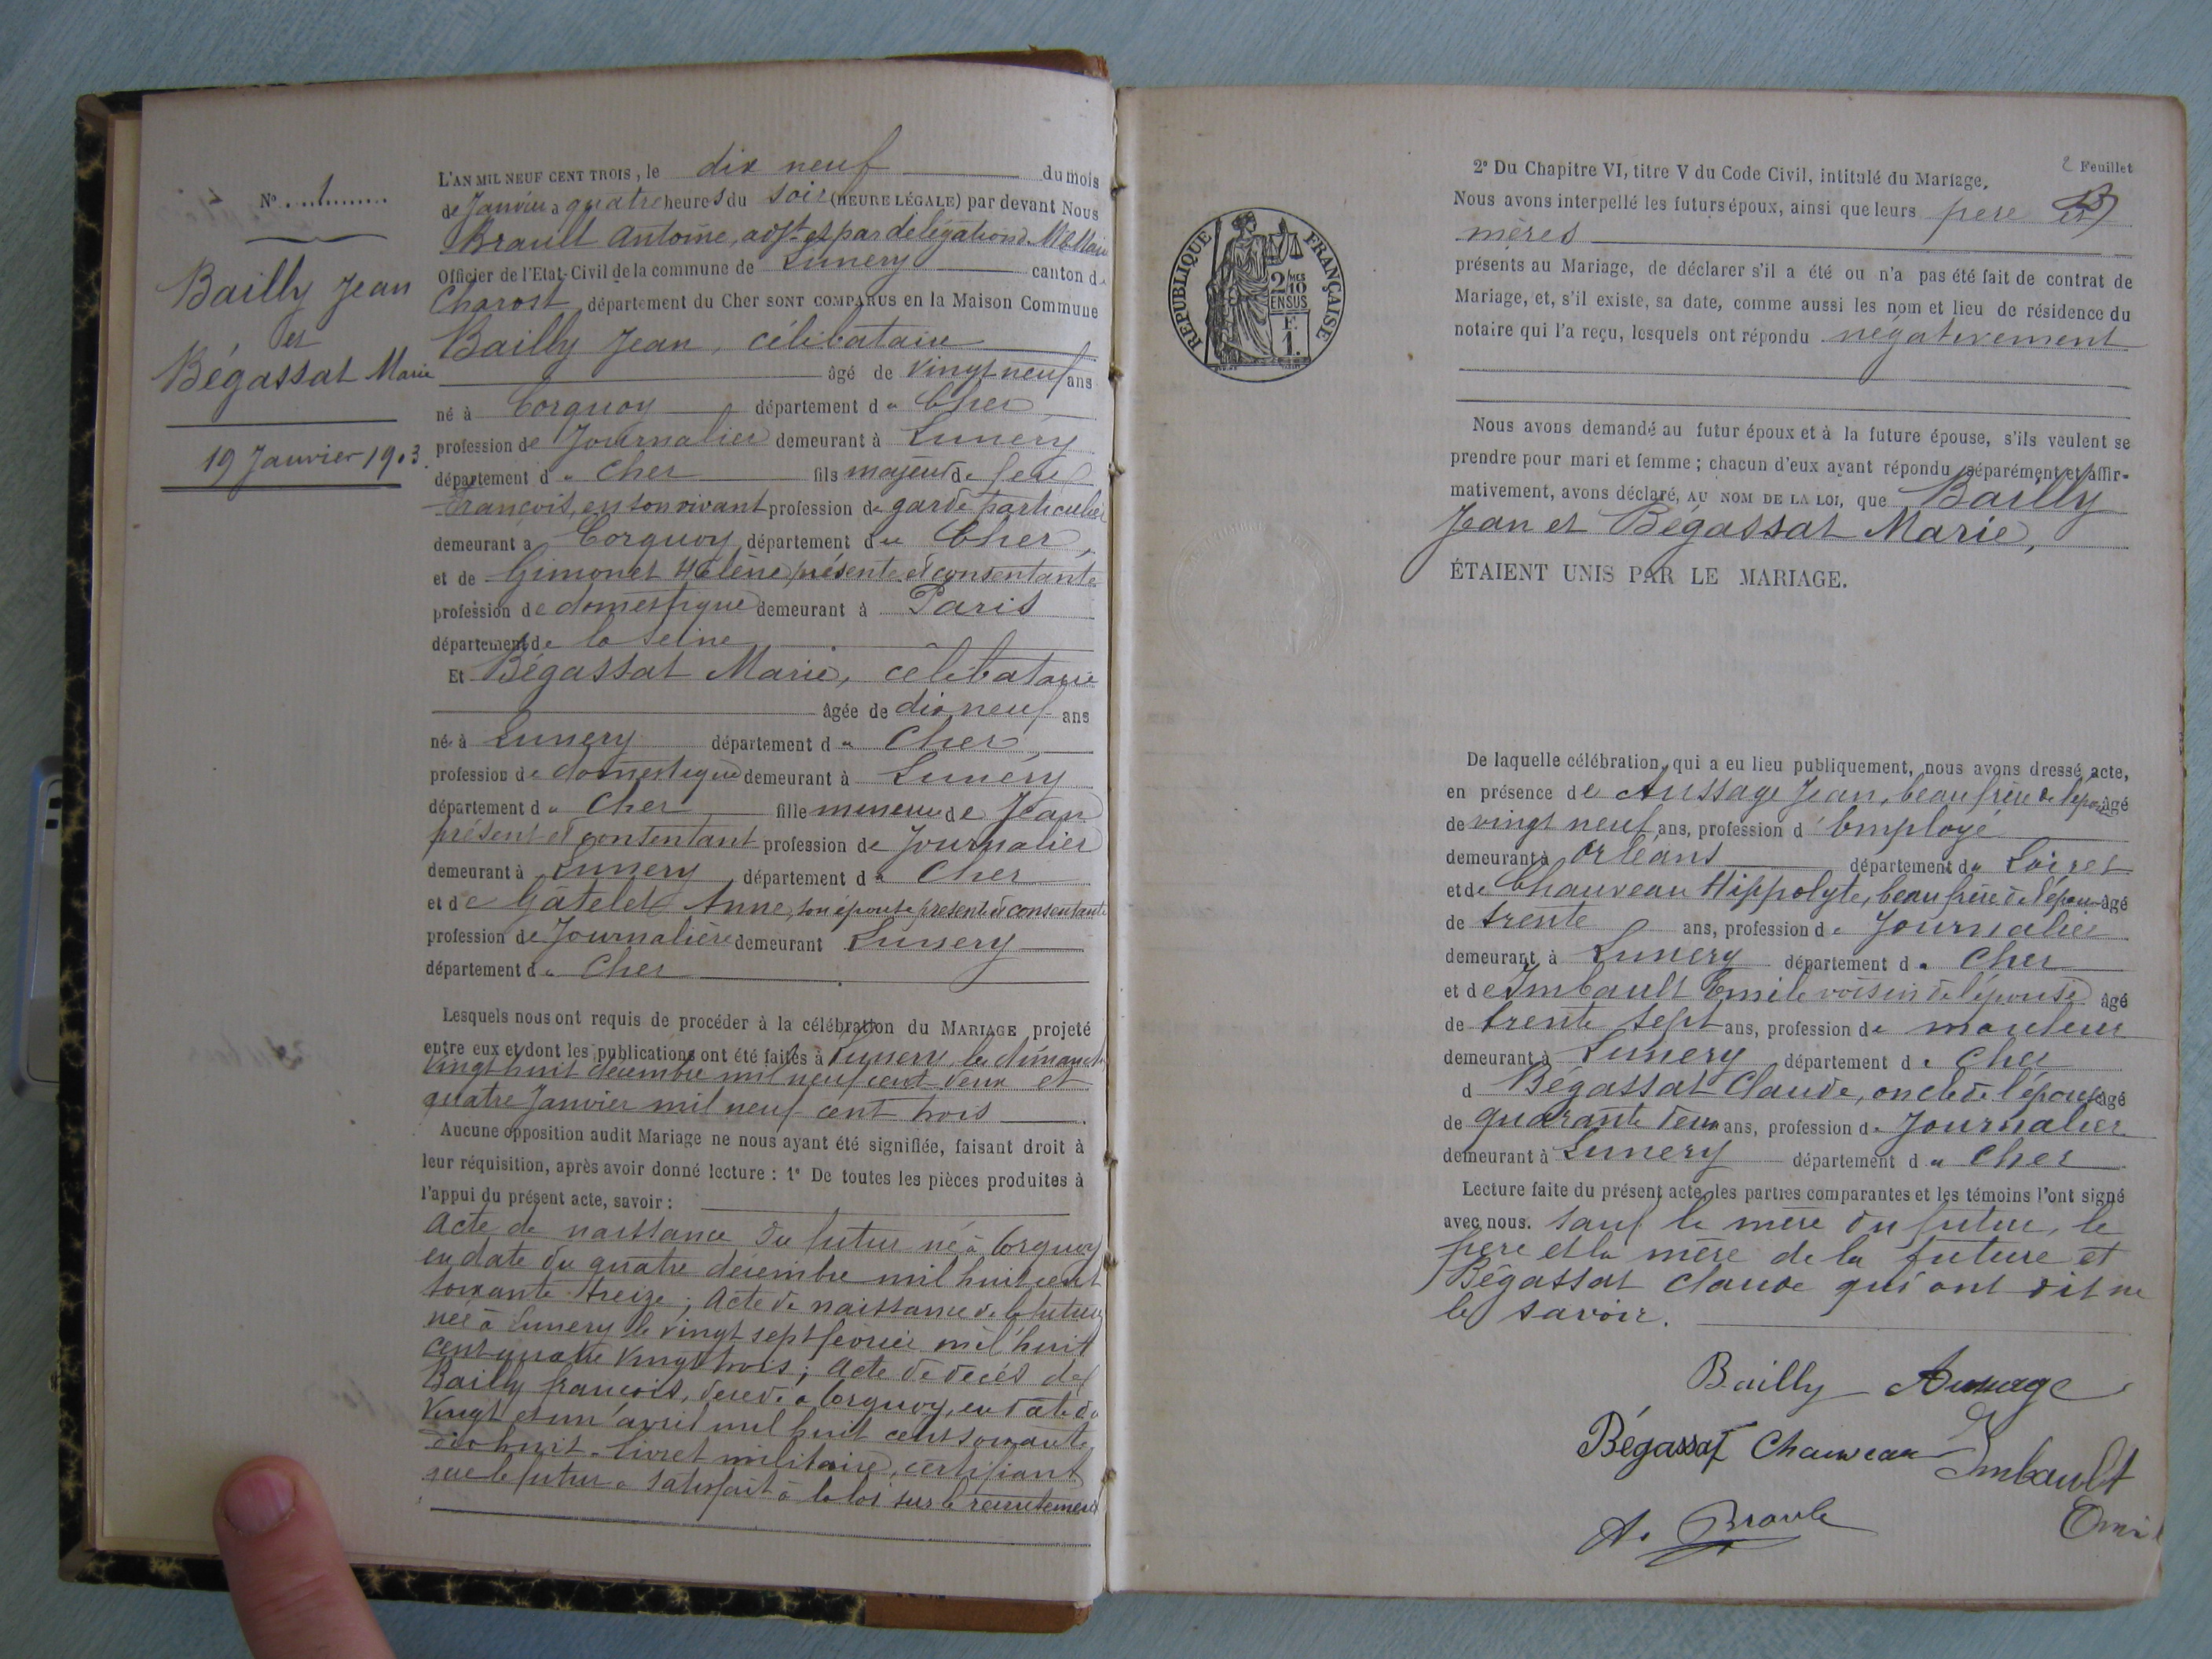 N° 1
Bailly Jean
et
Bégassat Marie
19 Janvier 1903.
L'AN MIL NEUF CENT TROIS, le dix neuf du mois
de Janvier à quatre heures du soir (HEURE LÉGALE) par devant Nous
Brault Antoine, adjt et par délégation de Mr le Maire
Officier de l'Etat-Civil de la commune de Lunery canton de
Charost, département du Cher SONT COMPARUS en la Maison Commune
Bailly Jean, célibataire
âgé de vingt neuf ans
né à Corquoy département du Cher,
profession de Journalier demeurant à Lunery
département du Cher fils majeur de feu
François, en son vivant profession de garde particulier
demeurant a Corquoy département du Cher,
et de Gimonet Hélène présente et consentante
profession de domestique demeurant à Paris
département de la Seine
Et Bégassat Marie, célibataire
âgée de dix neuf ans
née à Lunery département du Cher,
profession de domestique demeurant à Lunery
département du Cher fille mineure de Jean
présent et consentant profession de Journalier
demeurant à Lunery département du Cher
et de Gâtelet Anne, son épouse présente et consentante
profession de Journalière demeurant Lunery
département du Cher
Lesquels nous ont requis de procéder à la célébration du MARIAGE projeté
entre eux et dont les publications ont été faites à Lunery, les dimanches
vingt huit décembre mil neuf cent deux et
quatre Janvier mil neuf cent trois
Aucune opposition audit Mariage ne nous ayant été signifiée, faisant droit à
leur réquisition, après avoir donné lecture : 1° De toutes les pièces produites à
l'appui du présent acte, savoir :
Acte de naissance du futur né à Corquoy
en date du quatre décembre mil huit cent
soixante treize ; Acte de naissance de la future
née à Lunery le vingt sept février mil huit
cent quatre vingt trois ; Acte de décès de
Bailly François, décédé à Corquoy, en date du
vingt et un avril mil huit cent soixante
dix huit - livret militaire, certifiant
que le futur a satisfait à la loi sur le recrutement
2 Feuillet
REPUBLIQUE FRANÇAISE
2/10 EN SUS
F. 1.
2° Du Chapitre VI, titre V du Code Civil, intitulé du Mariage.
Nous avons interpellé les futurs époux, ainsi que leurs père et
mères
présents au Mariage, de déclarer s'il a été ou n'a pas été fait de contrat de
Mariage, et, s'il existe, sa date, comme aussi les nom et lieu de résidence du
notaire qui l'a reçu, lesquels ont répondu négativement
Nous avons demandé au futur époux et à la future épouse, s'ils veulent se
prendre pour mari et femme ; chacun d'eux ayant répondu séparément et affir-
mativement, avons déclaré, AU NOM DE LA LOI, que Bailly
Jean et Bégassat Marie,
ÉTAIENT UNIS PAR LE MARIAGE.
De laquelle célébration, qui a eu lieu publiquement, nous avons dressé acte,
en présence de Aussage Jean, beau frère de l'époux âgé
de vingt neuf ans, profession d'employé
demeurant à Orléans département du Loiret
et de Chauveau Hippolyte, beau frère de l'époux âgé
de trente ans, profession de Journalier
demeurant à Lunery département du Cher
et de Imbault Emile voisin de l'épouse âgé
de trente sept ans, profession de mouleur
demeurant à Lunery département du Cher
d Bégassat Claude, oncle de l'épouse âgé
de quarante deux ans, profession de Journalier
demeurant à Lunery département du Cher
Lecture faite du présent acte, les parties comparantes et les témoins l'ont signé
avec nous. sauf la mère du futur, le
père et la mère de la future et
Bégassat Claude qui ont dit ne
le savoir.
Bailly Aussage
Bégassat Chauveau Imbault
A. Brault Emile